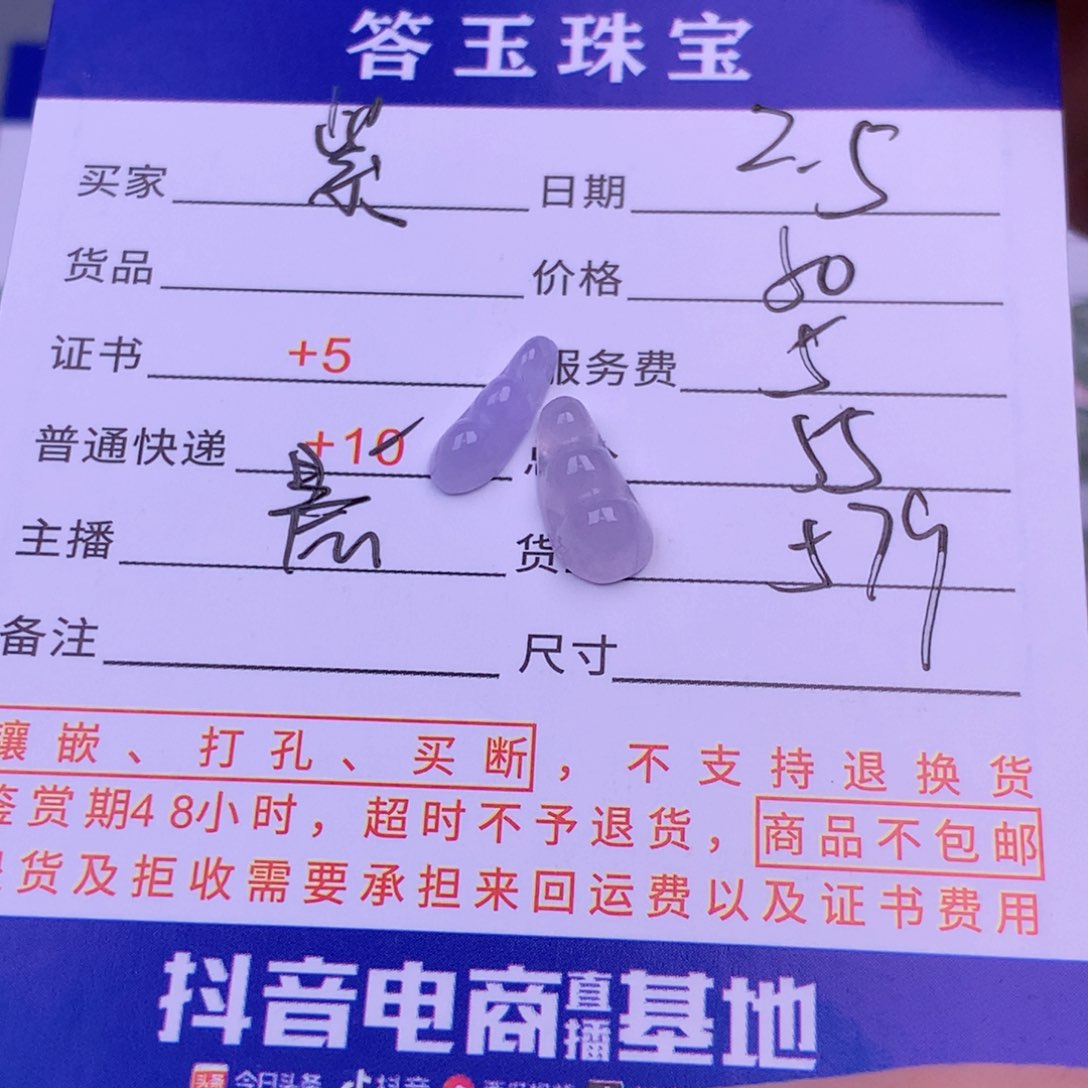 答玉珠宝
买家 紫 日期 2.5
货品 价格 60
证书 +5 服务费 5
普通快递 +10 55
主播 货 579
备注 尺寸
镶嵌、打孔、买断，不支持退换货
鉴赏期48小时，超时不予退货，商品不包邮
货及拒收需要承担来回运费以及证书费用
抖音电商直播基地
头条 今日头条 抖音